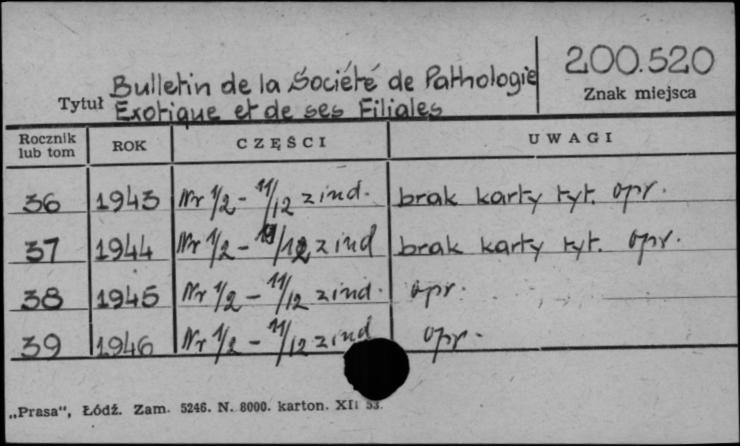 Bulletin de la Société de Pathologie 200.520
Tytuł Exotique et de ses Filiales Znak miejsca
Rocznik lub tom ROK CZĘŚCI UWAGI
36 1943 Nr 1/2 - 11/12 z ind. brak karty tyt. opr.
37 1944 Nr 1/2 - 11/12 z ind brak karty tyt. opr.
38 1945 Nr 1/2 - 11/12 z ind. opr.
39 1946 Nr 1/2 - 11/12 z ind opr.
„Prasa", Łódź. Zam. 5246. N. 8000. karton. XII 53.